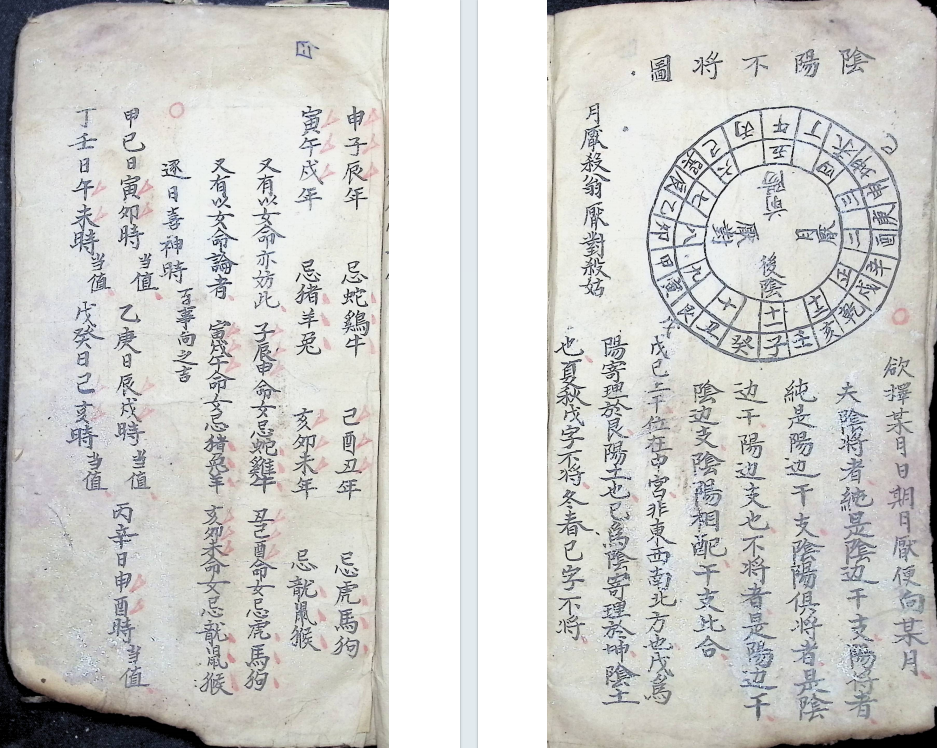 陰陽不將圖
午丁未坤申庚酉辛戌乾亥壬子癸丑艮寅甲卯乙辰巽巳丙
五四三二正十二十一十九八七六
前陽
月厭
後陰
厭對
欲擇某月日期月厭便向某月
夫陰將者純是陰边干支陽将者
純是陽边干支陰陽俱将者是陰
边干陽边支也不将者是陽边干
陰边支陰陽相配干支比合
戊己二干位在中宮非東西南北方也戊為
陽寄理於艮陽土也己為陰寄理於坤陰土
也夏秋戊字不将冬春己字不将
月厭殺翁厭對殺姑
申子辰年 忌蛇鷄牛 己酉丑年 忌虎馬狗
寅午戌年 忌猪羊兎 亥卯未年 忌龍鼠猴
又有以女命亦妨此 子辰申命女忌蛇雞牛 丑己酉命女忌虎馬狗
又有以女命論者 寅戌午命女忌猪兔羊 亥卯未命女忌龍鼠猴
逐日喜神時 百事向之吉
甲己日寅卯時当值 乙庚日辰戌時当值 丙辛日申酉時当值
丁壬日午未時当值 戊癸日己亥時当值